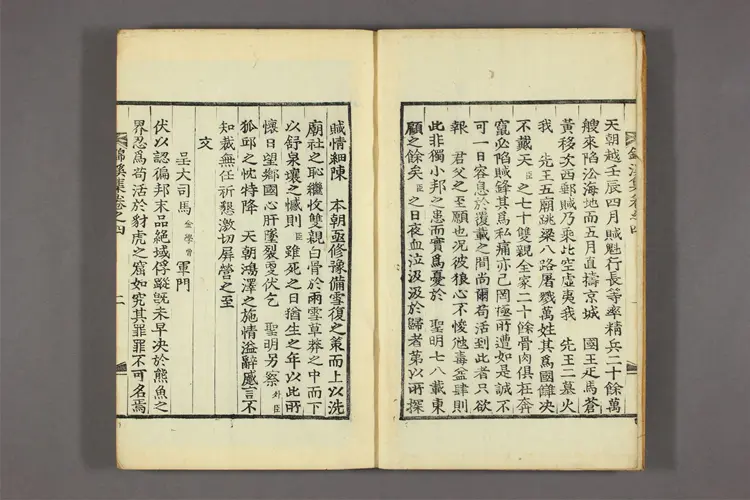 天朝越壬辰四月賊魁行長等率精兵二十餘萬
艘來陷沿海地而五月直擣京城 國王疋馬蒼
黃移次西鄙賊乃乘此空虛夷我 先王二墓火
我 先王五廟跳梁八路屠戮萬姓其爲國讎決
不戴天臣之七十雙親全家二十餘骨肉俱枉奔
竄必陷賊鋒其爲私痛亦己罔極所遭如是誠不
可一日容息於覆載之間尚爾苟活到此者只欲
報 君父之至願也况彼狼心不悛他毒益肆則
此非獨小邦之患而實爲憂於 聖明七八載東
顧之餘矣臣之日夜血泣汲汲於歸者第以所探
賊情細陳 本朝亟修豫備雪復之策而上以洗
廟社之恥繼收雙親白骨於雨雪草莽之中而下
以舒泉壤之憾則臣雖死之日猶生之年以此所
懷日望鄉國心肝墜裂更伏乞 聖明另察外臣
狐邱之忱特降 天朝鴻澤之施情溢辭蹙言不
知裁無任祈懇激切屏營之至
文
呈大司馬金學曾軍門
伏以認偏邦末品絶域俘蹤旣未早決於熊魚之
界忍爲苟活於豺虎之窟如究其罪罪不可名焉
錦溪集卷之四
二